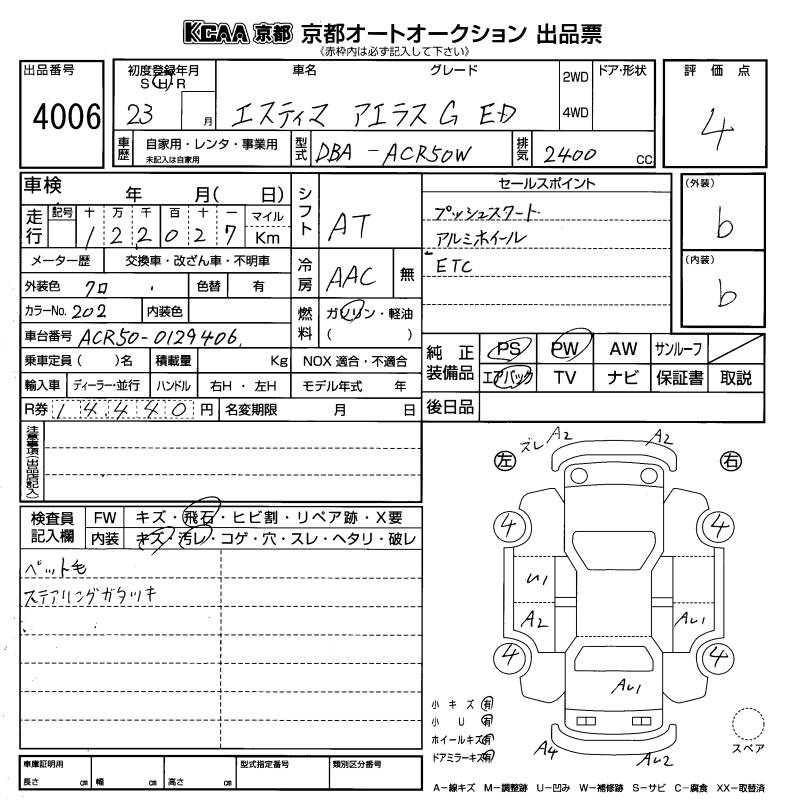 KCAA 京都 京都オートオークション 出品票
《赤枠内は必ず記入して下さい》
出品番号
4006
初度登録年月
S・H・R
23 月
車名 グレード
エスティマ アエラス G ED
2WD
4WD
ドア・形状
評価点
4
車歴
自家用・レンタ・事業用
未記入は自家用
型式
DBA-ACR50W
排気
2400 CC
車検 年 月( 日)
走行
記号 十 万 千 百 十 一
122027
マイル
Km
メーター歴 交換車・改ざん車・不明車
外装色 クロ 色替 有
カラーNo. 202 内装色
車台番号 ACR50-0129406
乗車定員( )名 積載量 Kg
輸入車 ディーラー・並行 ハンドル 右H・左H
R券 14,440 円 名変期限 月 日
シフト
AT
冷房
AAC 無
燃料
ガソリン・軽油
( )
NOX 適合・不適合
モデル年式 年
セールスポイント
プッシュスタート
アルミホイール
ETC
(外装)
b
(内装)
b
純正装備品
PS PW AW サンルーフ
エアバック TV ナビ 保証書 取説
後日品
注意事項(出品店記入)
検査員記入欄
FW キズ・飛石・ヒビ割・リペア跡・X要
内装 キズ・汚レ・コゲ・穴・スレ・ヘタリ・破レ
ペット毛
ステアリングガタツキ
左 右
ズレ A2 A2
4 4
U1
A2 AU1
4 4
AU1
A4 AU2
小キズ 有
小U 有
ホイールキズ 有
ドアミラーキズ 有
スペア
車庫証明用
長さ cm 幅 cm 高さ cm
型式指定番号
類別区分番号
A−線キズ M−調整跡 U−凹み W−補修跡 S−サビ C−腐食 XX−取替済